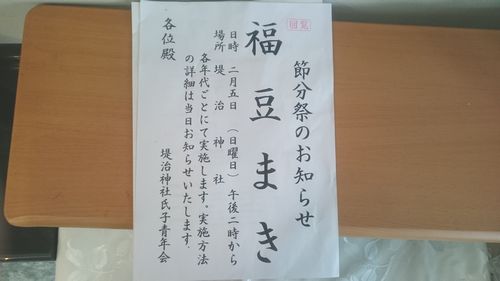 回覧
節分祭のお知らせ
福豆まき
日時 二月五日 (日曜日) 午後二時から
場所 堤治神社
各年代ごとにて実施します。実施方法
の詳細は当日お知らせいたします.
堤治神社氏子青年会
各位殿